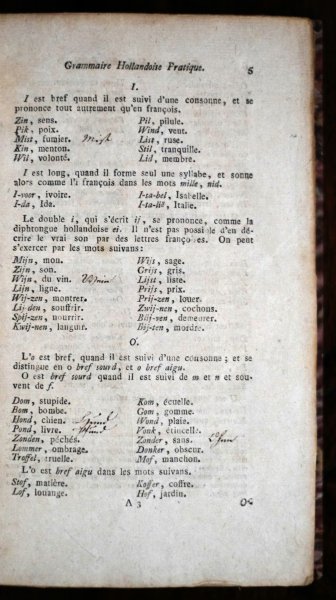 Grammaire Hollandoise Pratique. 5
I.
I est bref quand il est suivi d'une consonne, et se
prononce tout autrement qu'en françois.
Zin, sens. Pil, pilule.
Pik, poix. Wind, vent.
Mist, fumier. mist List, ruse.
Kin, menton. Stil, tranquille.
Wil, volonté. Lid, membre.
I est long, quand il forme seul une syllabe, et sonne
alors comme l'i françois dans les mots mille, nid.
I-voor, ivoire. I-sa-bel, Isabelle.
I-da, Ida. I-ta-lië, Italie.
Le double i, qui s'écrit ij, se prononce, comme la
diphtongue hollandoise ei. Il n'est pas possible d'en dé-
crire le vrai son par des lettres françoises. On peut
s'exercer par les mots suivans:
Mijn, mon. Wijs, sage.
Zijn, son. Grijs, gris.
Wijn, du vin. Lijst, liste.
Lijn, ligne. Prijs, prix.
Wij-zen, montrer. Prij-zen, louer.
Lij-den, souffrir. Zwij-nen, cochons.
Spij-zen, nourrir. Blij-ven, demeurer.
Kwij-nen, languir. Bij-ten, mordre.
O.
L'o est bref, quand il est suivi d'une consonne; et se
distingue en o bref sourd, et o bref aigu.
O est bref sourd quand il est suivi de m et n et sou-
vent de f.
Dom, stupide. Kom, écuelle.
Bom, bombe. Gom, gomme.
Hond, chien. Wond, plaie.
Pond, livre. Vonk, étincelle.
Zonden, péchés. Zonder, sans.
Lommer, ombrage. Donker, obscur.
Troffel, truelle. Mof, manchon.
L'o est bref aigu dans les mots suivans.
Stof, matière. Koffer, coffre.
Lof, louange. Hof, jardin.
A 3